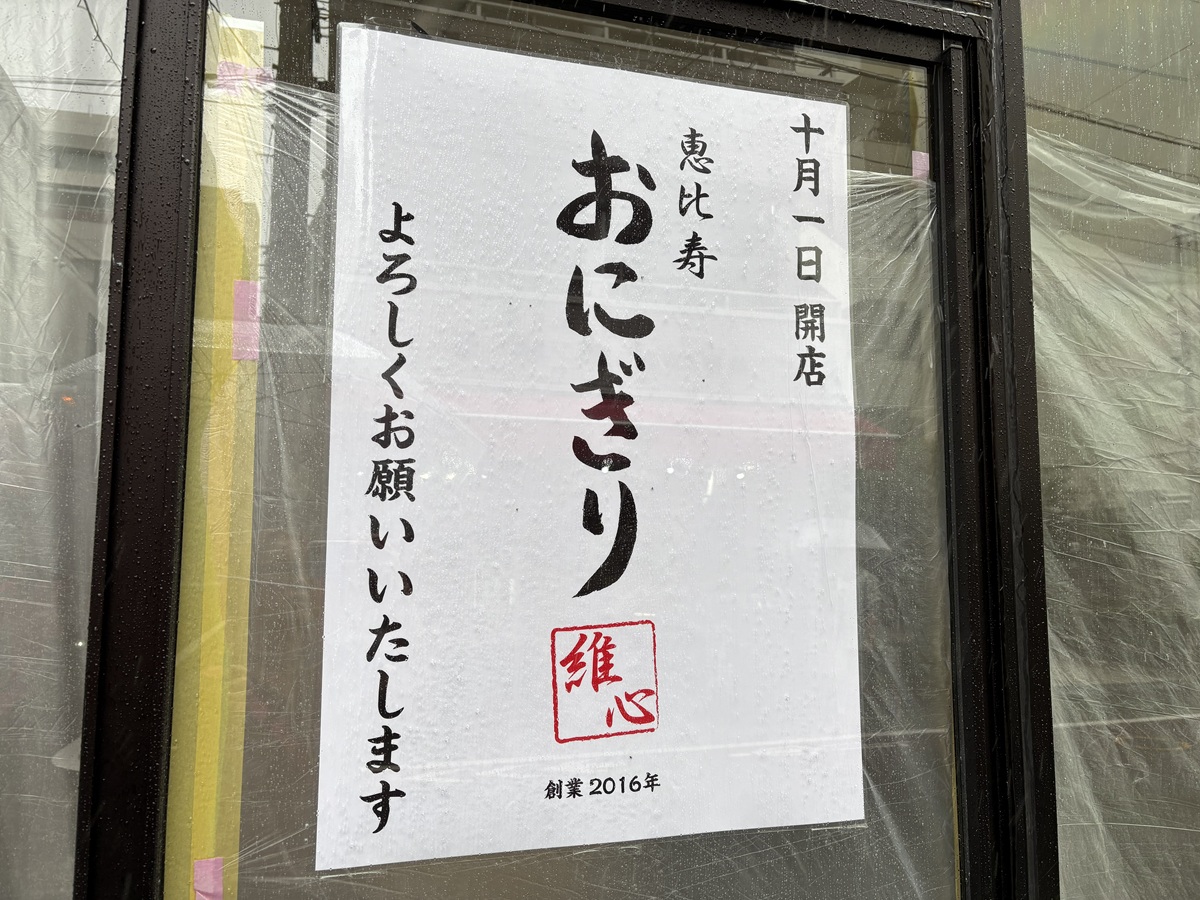 十月一日 開店
恵比寿
おにぎり
維心
創業 2016年
よろしくお願いいたします